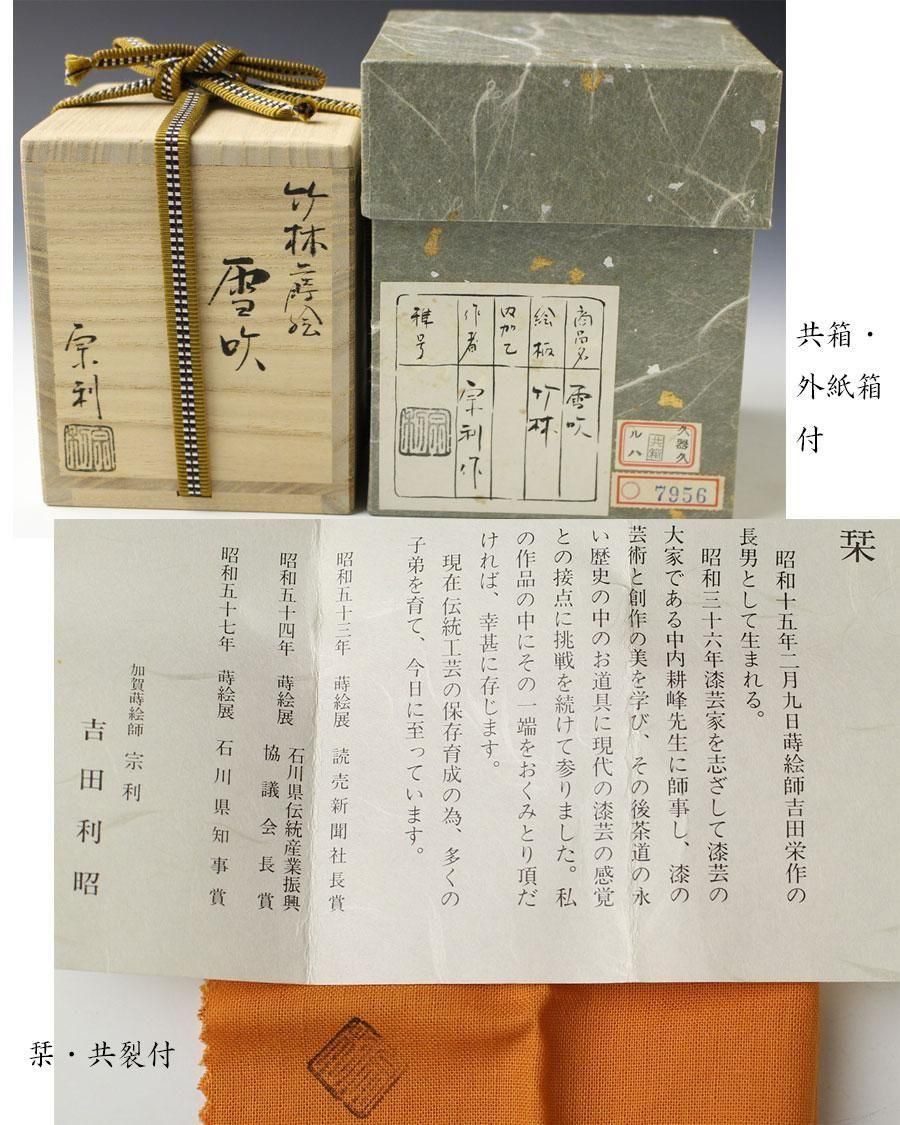 竹林蒔絵
雪吹
宗利
商品名 雪吹
絵板 竹林
作者 宗利作
雅号
久器久
共箱
ルハ
〇 7956
共箱・
外紙箱
付
栞
昭和十五年二月九日蒔絵師吉田栄作の
長男として生まれる。
昭和三十六年漆芸家を志ざして漆芸の
大家である中内耕峰先生に師事し、漆の
芸術と創作の美を学び、その後茶道の永
い歴史の中のお道具に現代の漆芸の感覚
との接点に挑戦を続けて参りました。私
の作品の中にその一端をおくみとり頂だ
ければ、幸甚に存じます。
現在伝統工芸の保存育成の為、多くの
子弟を育て、今日に至っています。
昭和五十三年 蒔絵展 読売新聞社長賞
昭和五十四年 蒔絵展 石川県伝統産業振興
協議会長賞
昭和五十七年 蒔絵展 石川県知事賞
加賀蒔絵師 宗利
吉田利昭
栞・共裂付